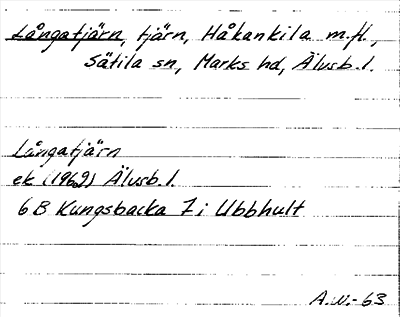 Långatjärn, tjärn, Håkankila m.fl.,
Sätila sn, Marks hd, Älvsb. l.
Långatjärn
ek (1962) Älvsb. l.
6B Kungsbacka 7i Ubbhult
A.W.-63